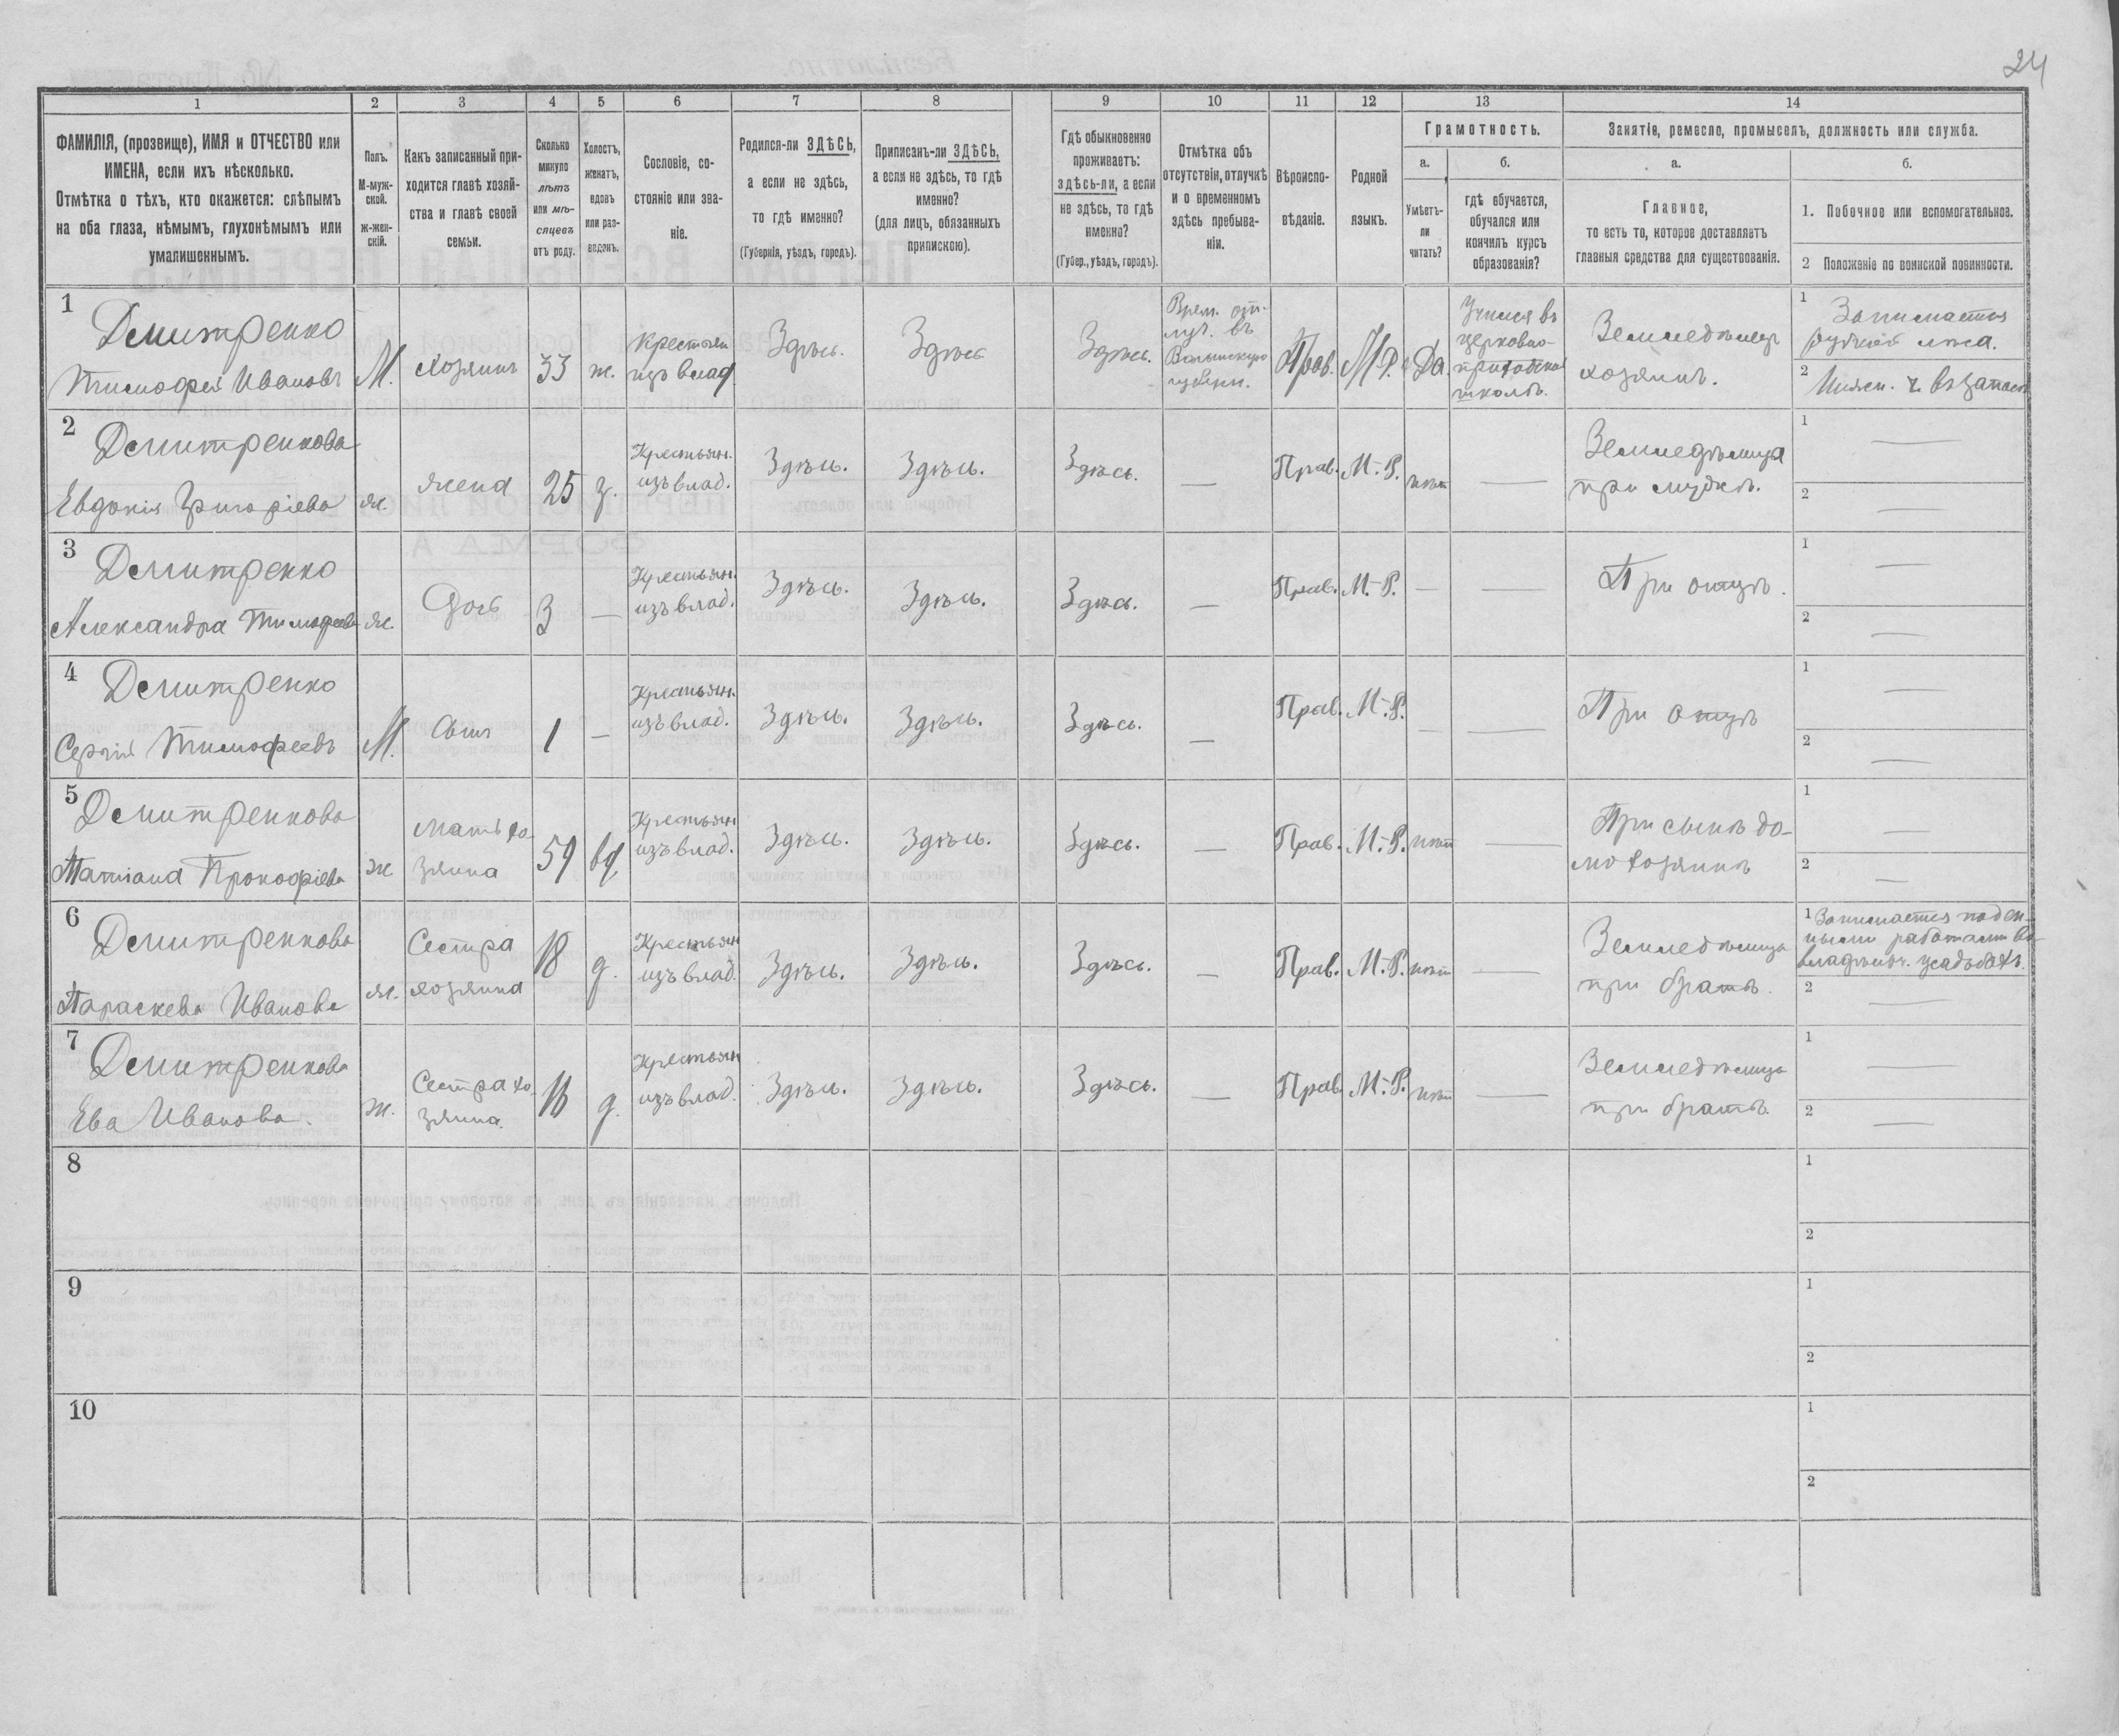 24
1 2 3 4 5 6 7 8 9 10 11 12 13 14
ФАМИЛІЯ, (прозвище), ИМЯ и ОТЧЕСТВО или
ИМЕНА, если ихъ нѣсколько.
Отмѣтка о тѣхъ, кто окажется: слѣпымъ
на оба глаза, нѣмымъ, глухонѣмымъ или
умалишеннымъ.
Полъ.
М-муж-
ской.
ж-жен-
скій.
Какъ записанный при-
ходится главѣ хозяй-
ства и главѣ своей
семьи.
Сколько
минуло
лѣтъ
или мѣ-
сяцевъ
отъ роду.
Холостъ,
женатъ,
вдовъ
или раз-
веденъ.
Сословіе, со-
стояніе или зва-
ніе.
Родился-ли ЗДѢСЬ,
а если не здѣсь,
то гдѣ именно?
(Губернія, уѣздъ, городъ).
Приписанъ-ли ЗДѢСЬ,
а если не здѣсь, то гдѣ
именно?
(для лицъ, обязанныхъ
припискою).
Гдѣ обыкновенно
проживаетъ:
здѣсь-ли, а если
не здѣсь, то гдѣ
именно?
(Губер., уѣздъ, городъ).
Отмѣтка объ
отсутствіи, отлучкѣ
и о временномъ
здѣсь пребыва-
ніи.
Вѣроиспо-
вѣданіе.
Родной
языкъ.
Грамотность.
а.
Умѣетъ-
ли
читать?
б.
гдѣ обучается,
обучался или
кончилъ курсъ
образованія?
Занятіе, ремесло, промыселъ, должность или служба.
а.
Главное,
то есть то, которое доставляетъ
главныя средства для существованія.
б.
1. Побочное или вспомогательное.
2 Положеніе по воинской повинности.
1
Демитренко
Тимофей Ивановъ
М.
хозяинъ
33
ж.
Крестьян
изъ влад
Здѣсь.
Здѣсь
Здѣсь.
Врем. от-
луч. въ
Волынскую
губерн.
Прав.
М.Р.
Да
Учился въ
церковно-
приходской
школѣ.
Земледѣлецъ
хозяинъ.
1 Занимается
рубкой лѣса.
2 Нижн. ч. въ запасѣ
2
Демитренкова
Евдокія Григоріева
ж.
жена
25
з.
Крестьян.
изъ влад.
Здѣсь.
Здѣсь.
Здѣсь.
—
Прав.
М.-Р.
нѣт
—
Земледѣлица
при мужѣ.
1 —
2 —
3
Демитренко
Александра Тимофеева
ж.
Дочь
3
—
Крестьян.
изъ влад.
Здѣсь.
Здѣсь.
Здѣсь.
—
Прав.
М.-Р.
—
—
При отцѣ.
1 —
2 —
4
Демитренко
Сергій Тимофеевъ
М.
Сынъ
1
—
Крестьян.
изъ влад.
Здѣсь.
Здѣсь.
Здѣсь.
—
Прав.
М.-Р.
—
—
При отцѣ
1 —
2 —
5
Демитренкова
Татіана Прокофіева
ж
мать хо-
зяина
59
вд
Крестьян
изъ влад.
Здѣсь.
Здѣсь.
Здѣсь.
—
Прав.
М.-Р.
нѣт
—
При сынѣ до-
мохозяинѣ
1 —
2 —
6
Демитренкова
Параскева Иванова
ж.
Сестра
хозяина
18
д.
Крестьян
изъ влад.
Здѣсь.
Здѣсь.
Здѣсь.
—
Прав.
М.-Р.
нѣт
—
Земледѣлица
при братѣ.
1 Занимается поден-
ными работами во
владѣльч. усадьбахъ.
2 —
7
Демитренкова
Ева Иванова.
ж.
Сестра хо-
зяина.
16
д.
Крестьян
изъ влад.
Здѣсь.
Здѣсь.
Здѣсь.
—
Прав
М.-Р.
нѣт
—
Земледѣлица
при братѣ.
1 —
2 —
8
1
2
9
1
2
10
1
2